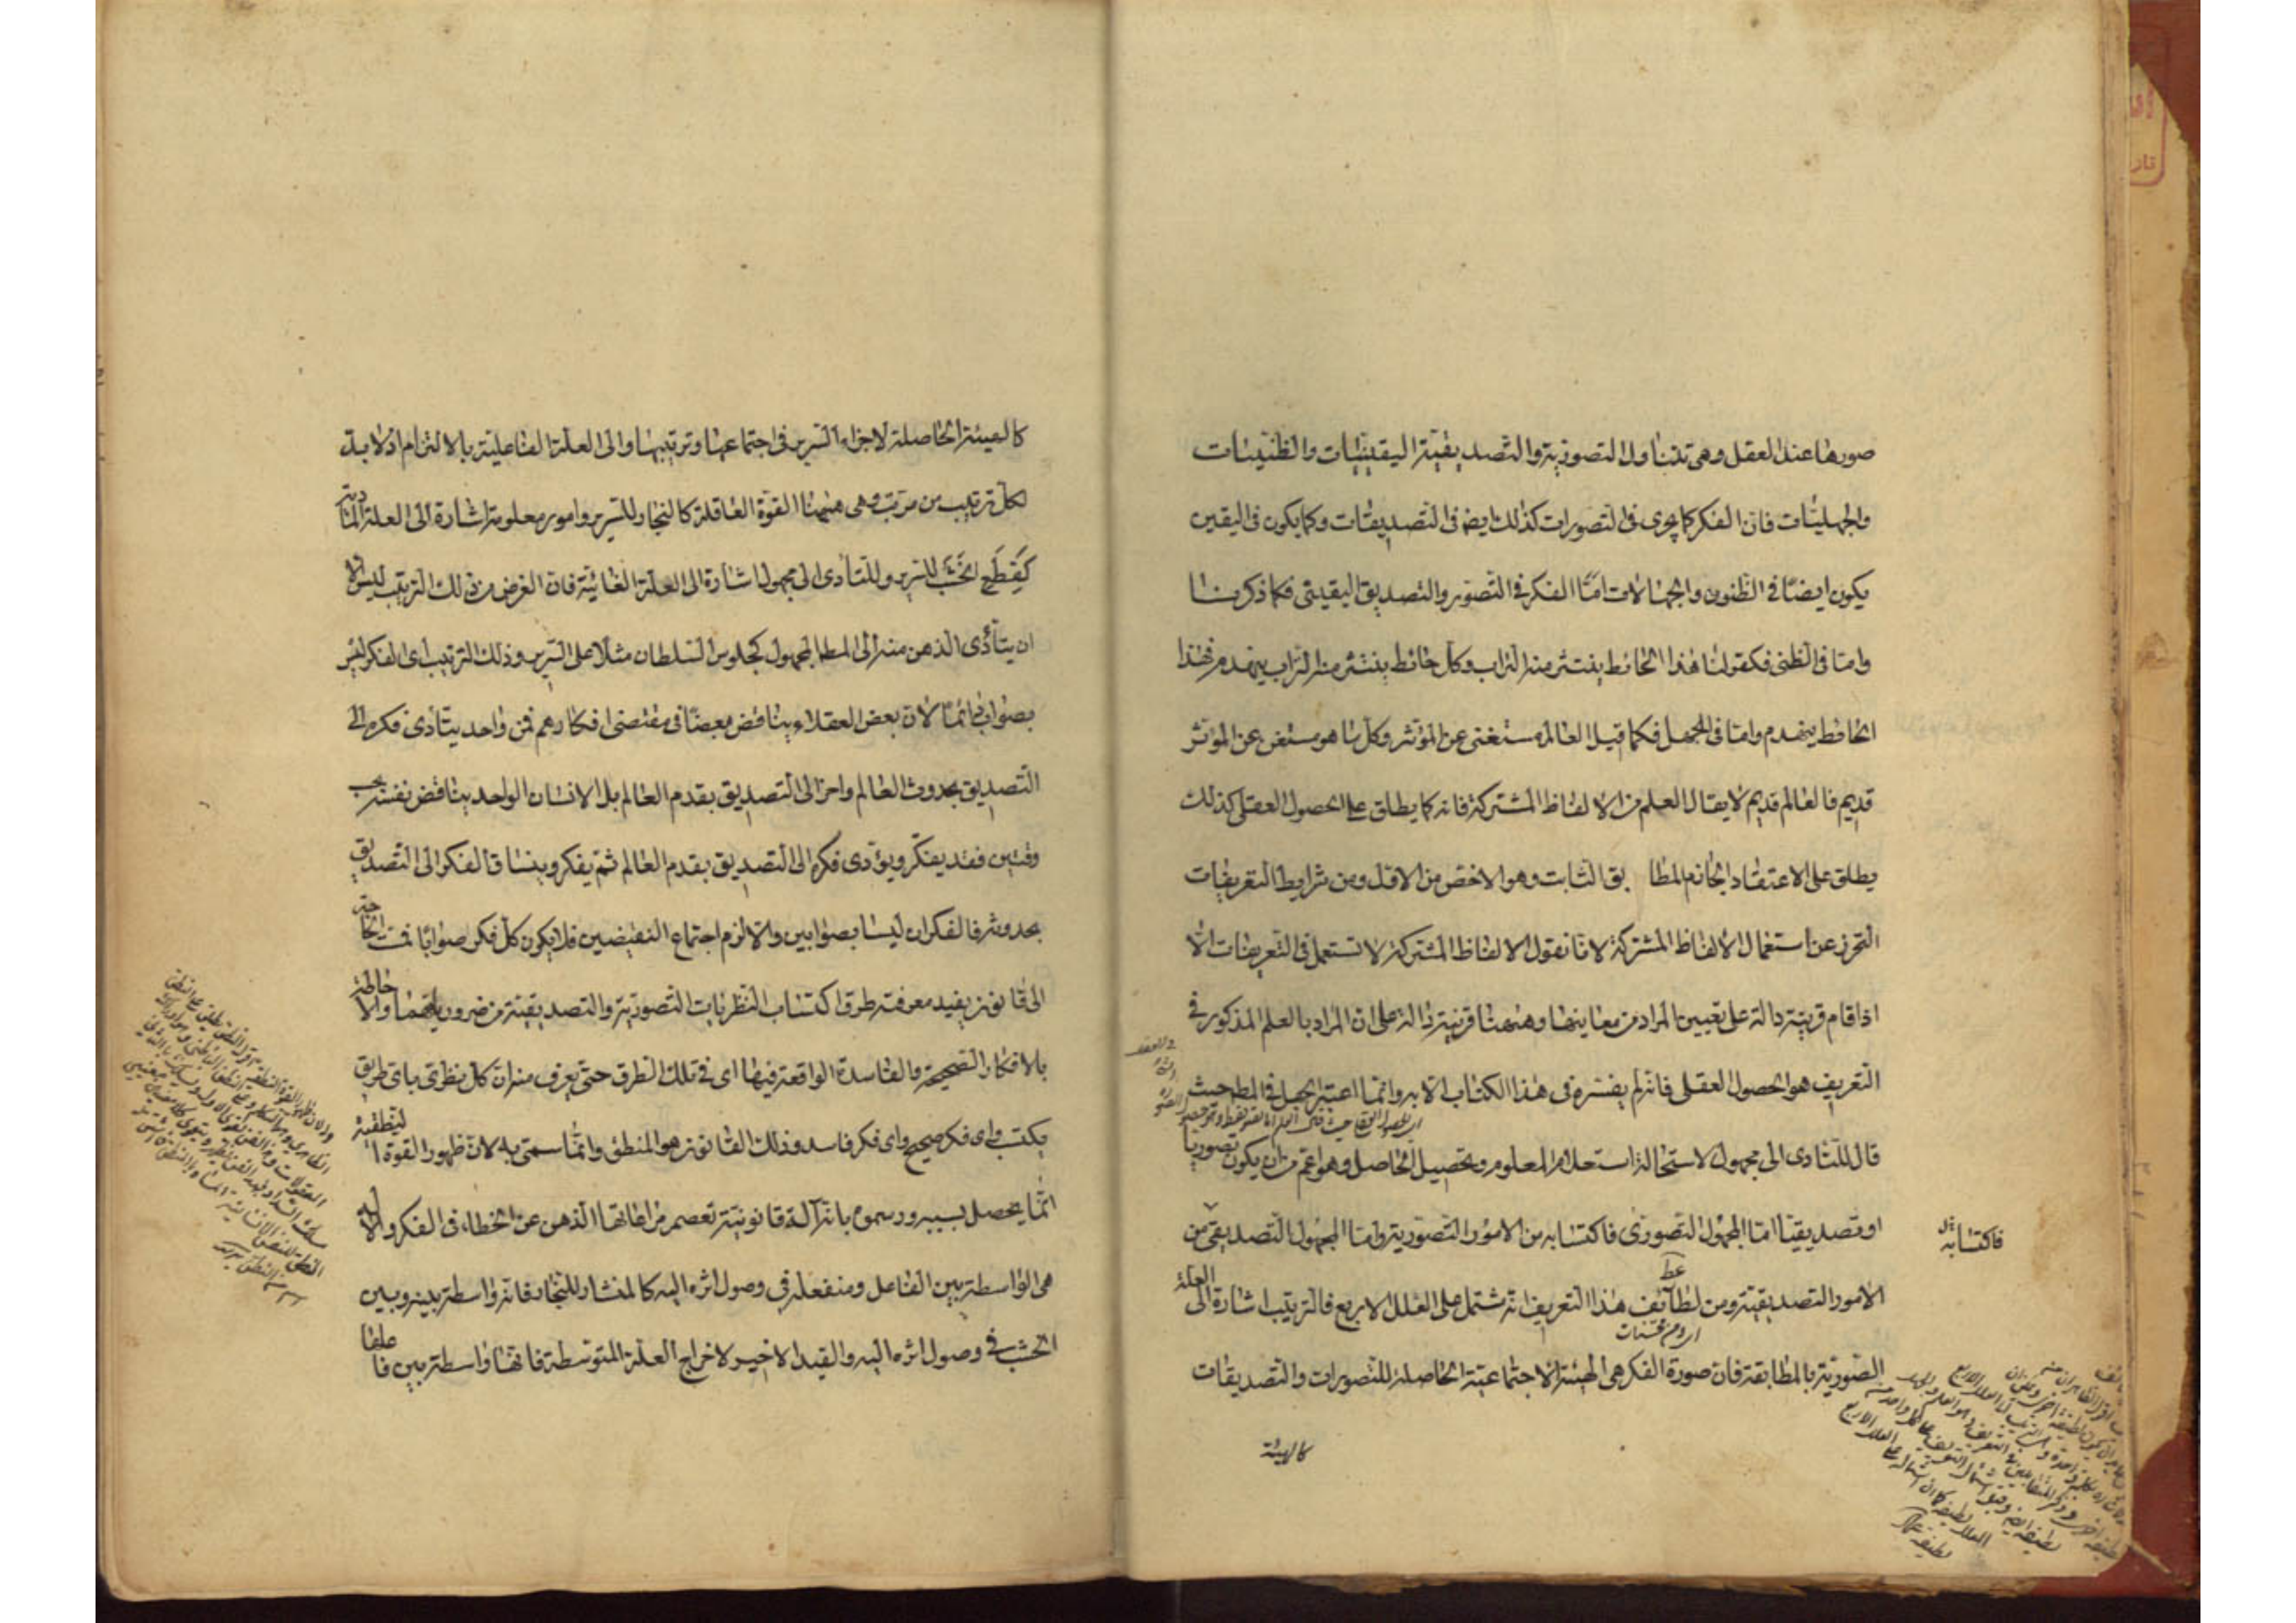 صورها عند العقل وهى تتناول التصورية والتصديقية اليقينيات والظنيات
والجهليات فان الفكر كما يجرى فى التصورات كذلك ايضا فى التصديقات وكما يكون فى اليقين
يكون ايضا فى الظنون والجهالات اما الفكر فى التصور والتصديق اليقينى فكما ذكرنا
واما فى الظنى فكقولنا هذا الحائط ينتثر منه التراب وكل حائط ينتثر منه التراب ينهدم فهذا
الحائط ينهدم واما فى الجهل فكما قيل العالم مستغنى عن المؤثر وكل ما هو مستغن عن المؤثر
قديم فالعالم قديم لا يقال العلم من الالفاظ المشتركة فانه كما يطلق على الحصول العقلى كذلك
يطلق على الاعتقاد الجازم المطابق الثابت وهو الاخص من الاول ومن شرايط التعريفات
التحرز عن استعمال الالفاظ المشتركة لانا نقول الالفاظ المشتركة لا تستعمل فى التعريفات الا
اذا قام قرينة دالة على تعيين المراد من معانيها وههنا قرينة دالة على ان المراد بالعلم المذكور فى
التعريف هو الحصول العقلى فانه لم يفسره فى هذا الكتاب الا به وانما اعتبر الجهل فى المط حيث
قال للتادى الى مجهول لاستحالة استعلام المعلوم وتحصيل الحاصل وهو اعم من ان يكون تصوريا
او تصديقيا اما المجهول التصورى فاكتسابه من الامور التصورية واما المجهول التصديقى من
فاكتسابه
الامور التصديقية ومن لطائف هذا التعريف انه مشتمل على العلل الاربع فالترتيب اشارة الى العلة
الصورية بالمطابقة فان صورة الفكر هى الهيئة الاجتماعية الحاصلة للتصورات والتصديقات
كالهيئة
كالهيئة الحاصلة لاجزاء السرير فى اجتماعها وترتيبها والى العلة الفاعلية بالالتزام اذ لا بد
لكل ترتيب من مرتب وهى ههنا القوة العاقلة كالنجار للسرير وامور معلومة اشارة الى العلة المادية
كقطع الخشب للسرير وللتأدى الى مجهول اشارة الى العلة الغائية فان الغرض من ذلك الترتيب ليس الا
ان يتأدى الذهن منه الى المط المجهول كجلوس السلطان مثلا على السرير وذلك الترتيب اى الفكر ليس
بصواب دائما لان بعض العقلاء يناقض بعضا فى مقتضى افكارهم فمن واحد يتأدى فكره الى
التصديق بحدوث العالم واخر الى التصديق بقدم العالم بل الانسان الواحد يناقض نفسه بحسب
وقتين فقد يفكر ويؤدى فكره الى التصديق بقدم العالم ثم يفكر وينساق الفكر الى التصديق
بحدوثه فالفكران ليسا بصوابين والا لزم اجتماع النقيضين فلا يكون كل فكر صوابا فمست الحاجة
الى قانون يفيد معرفة طرق اكتساب النظريات التصورية والتصديقية من ضرورياتهما والاحاطة
بالافكار الصحيحة والفاسدة الواقعة فيها اى فى تلك الطرق حتى يعرف منه ان كل نظرى باى طريق
يكتسب واى فكر صحيح واى فكر فاسد وذلك القانون هو المنطق وانما سمى به لان ظهور القوة النطقية
انما يحصل بسببه ورسموه بانه آلة قانونية تعصم مراعاتها الذهن عن الخطاء فى الفكر والالة
هى الواسطة بين الفاعل ومنفعله فى وصول اثره اليه كالمنشار للنجار فانه واسطة بينه وبين
الخشب فى وصول اثره اليه والقيد الاخير لاخراج العلة المتوسطة فانها واسطة بين فاعلها